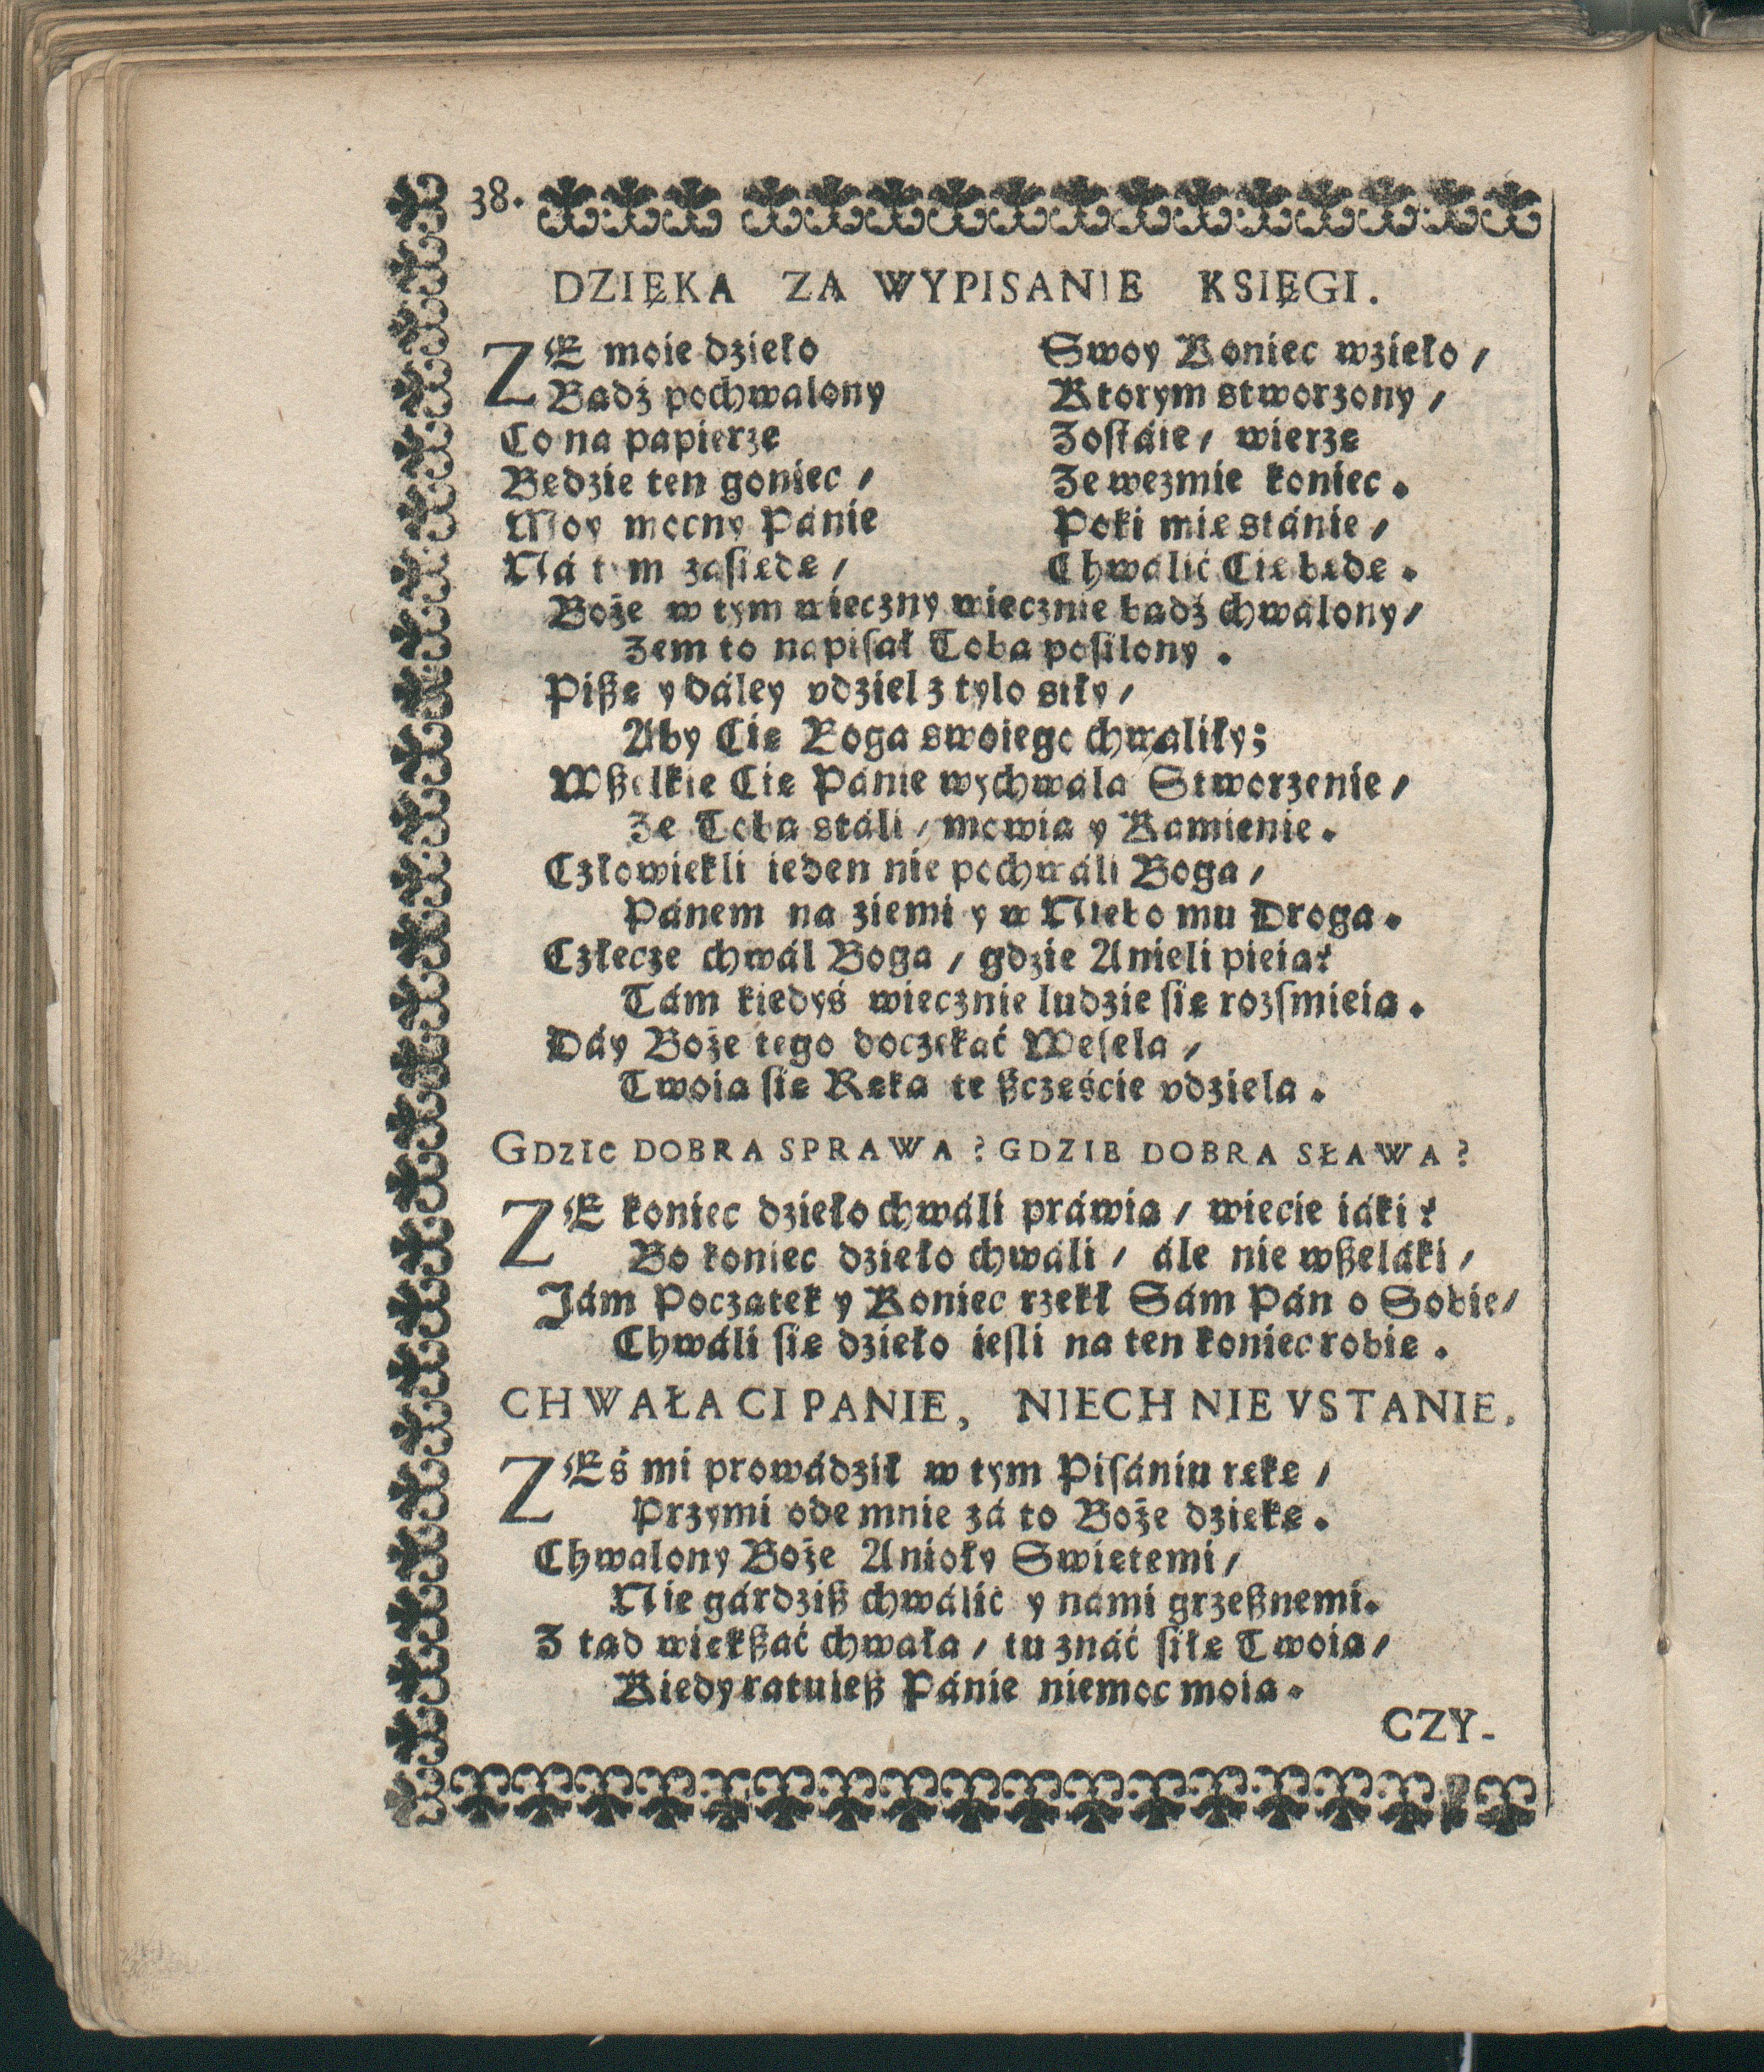 38.
DZIĘKA ZA WYPISANIE KSIĘGI.
ZE moie dzieło Swoy Koniec wzięło /
Bądź pochwalony Ktorym stworzony /
Co na papierze Zostáie / wierzę
Będzie ten goniec / Ze wezmie koniec.
Moy mocny Pánie Poki mię stánie /
Ná tym zasiędę / Chwalić Cię będę.
Boże w tym wieczny wiecznie bądź chwalony /
Zem to napisał Tobą posilony.
Piszę y dáley vdziel z tylo siły /
Aby Cię Boga swoiego chwaliły;
Wszelkie Cię Pánie wychwala Stworzenie /
Ze Tobą stáli / mowią y Kamienie.
Człowiekli ieden nie pochwáli Boga /
Pánem na ziemi y w Niebo mu Droga.
Człecze chwál Boga / gdzie Anieli pieią?
Tám kiedyś wiecznie ludzie się rozsmieią.
Dáy Boże tego doczekać Wesela /
Twoia się Ręka te szczęście vdziela.
GDZIE DOBRA SPRAWA? GDZIE DOBRA SŁAWA?
ZE koniec dzieło chwáli práwią / wiecie iáki?
Bo koniec dzieło chwali / ále nie wszeláki /
Jám Początek y Koniec rzekł Sám Pán o Sobie /
Chwáli się dzieło iesli na ten koniec robię.
CHWAŁA CI PANIE, NIECH NIE VSTANIE.
ZEś mi prowádził w tym Pisániu rękę /
Przymi ode mnie zá to Boże dziękę.
Chwalony Boże Anioły Swiętemi /
Nie gárdzisz chwálić y námi grzesznemi.
Z tąd większać chwała / tu znáć siłę Twoię /
Kiedy ratuiesz Pánie niemoc moię.
CZY-